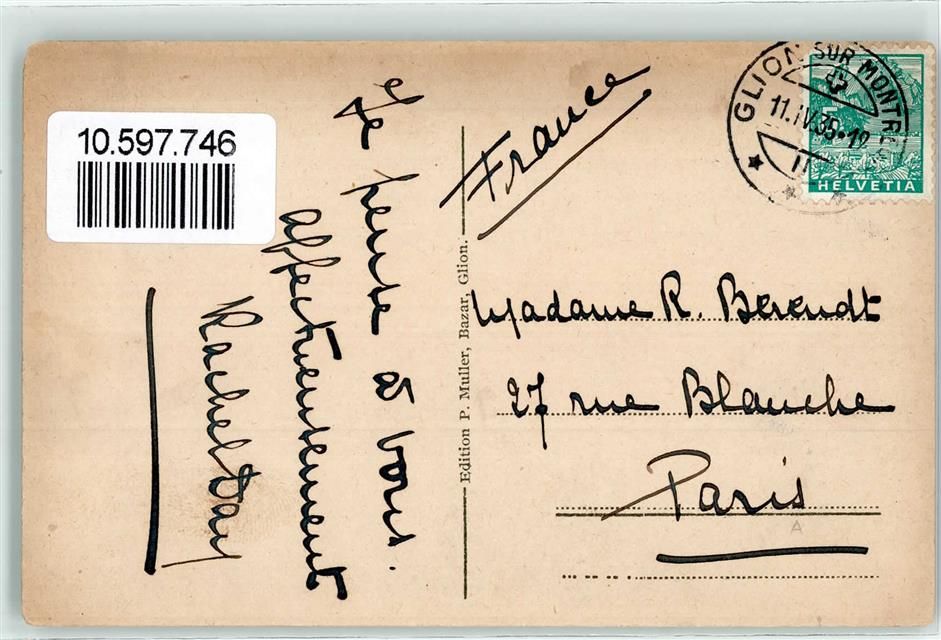 10.597.746
Je pense à vous.
affectueusement
Rachel Day
Edition P. Muller, Bazar, Glion.
France
GLION SUR MONTREUX
11.IV.35
HELVETIA
Madame R. Berendt
27 rue Blanche
Paris